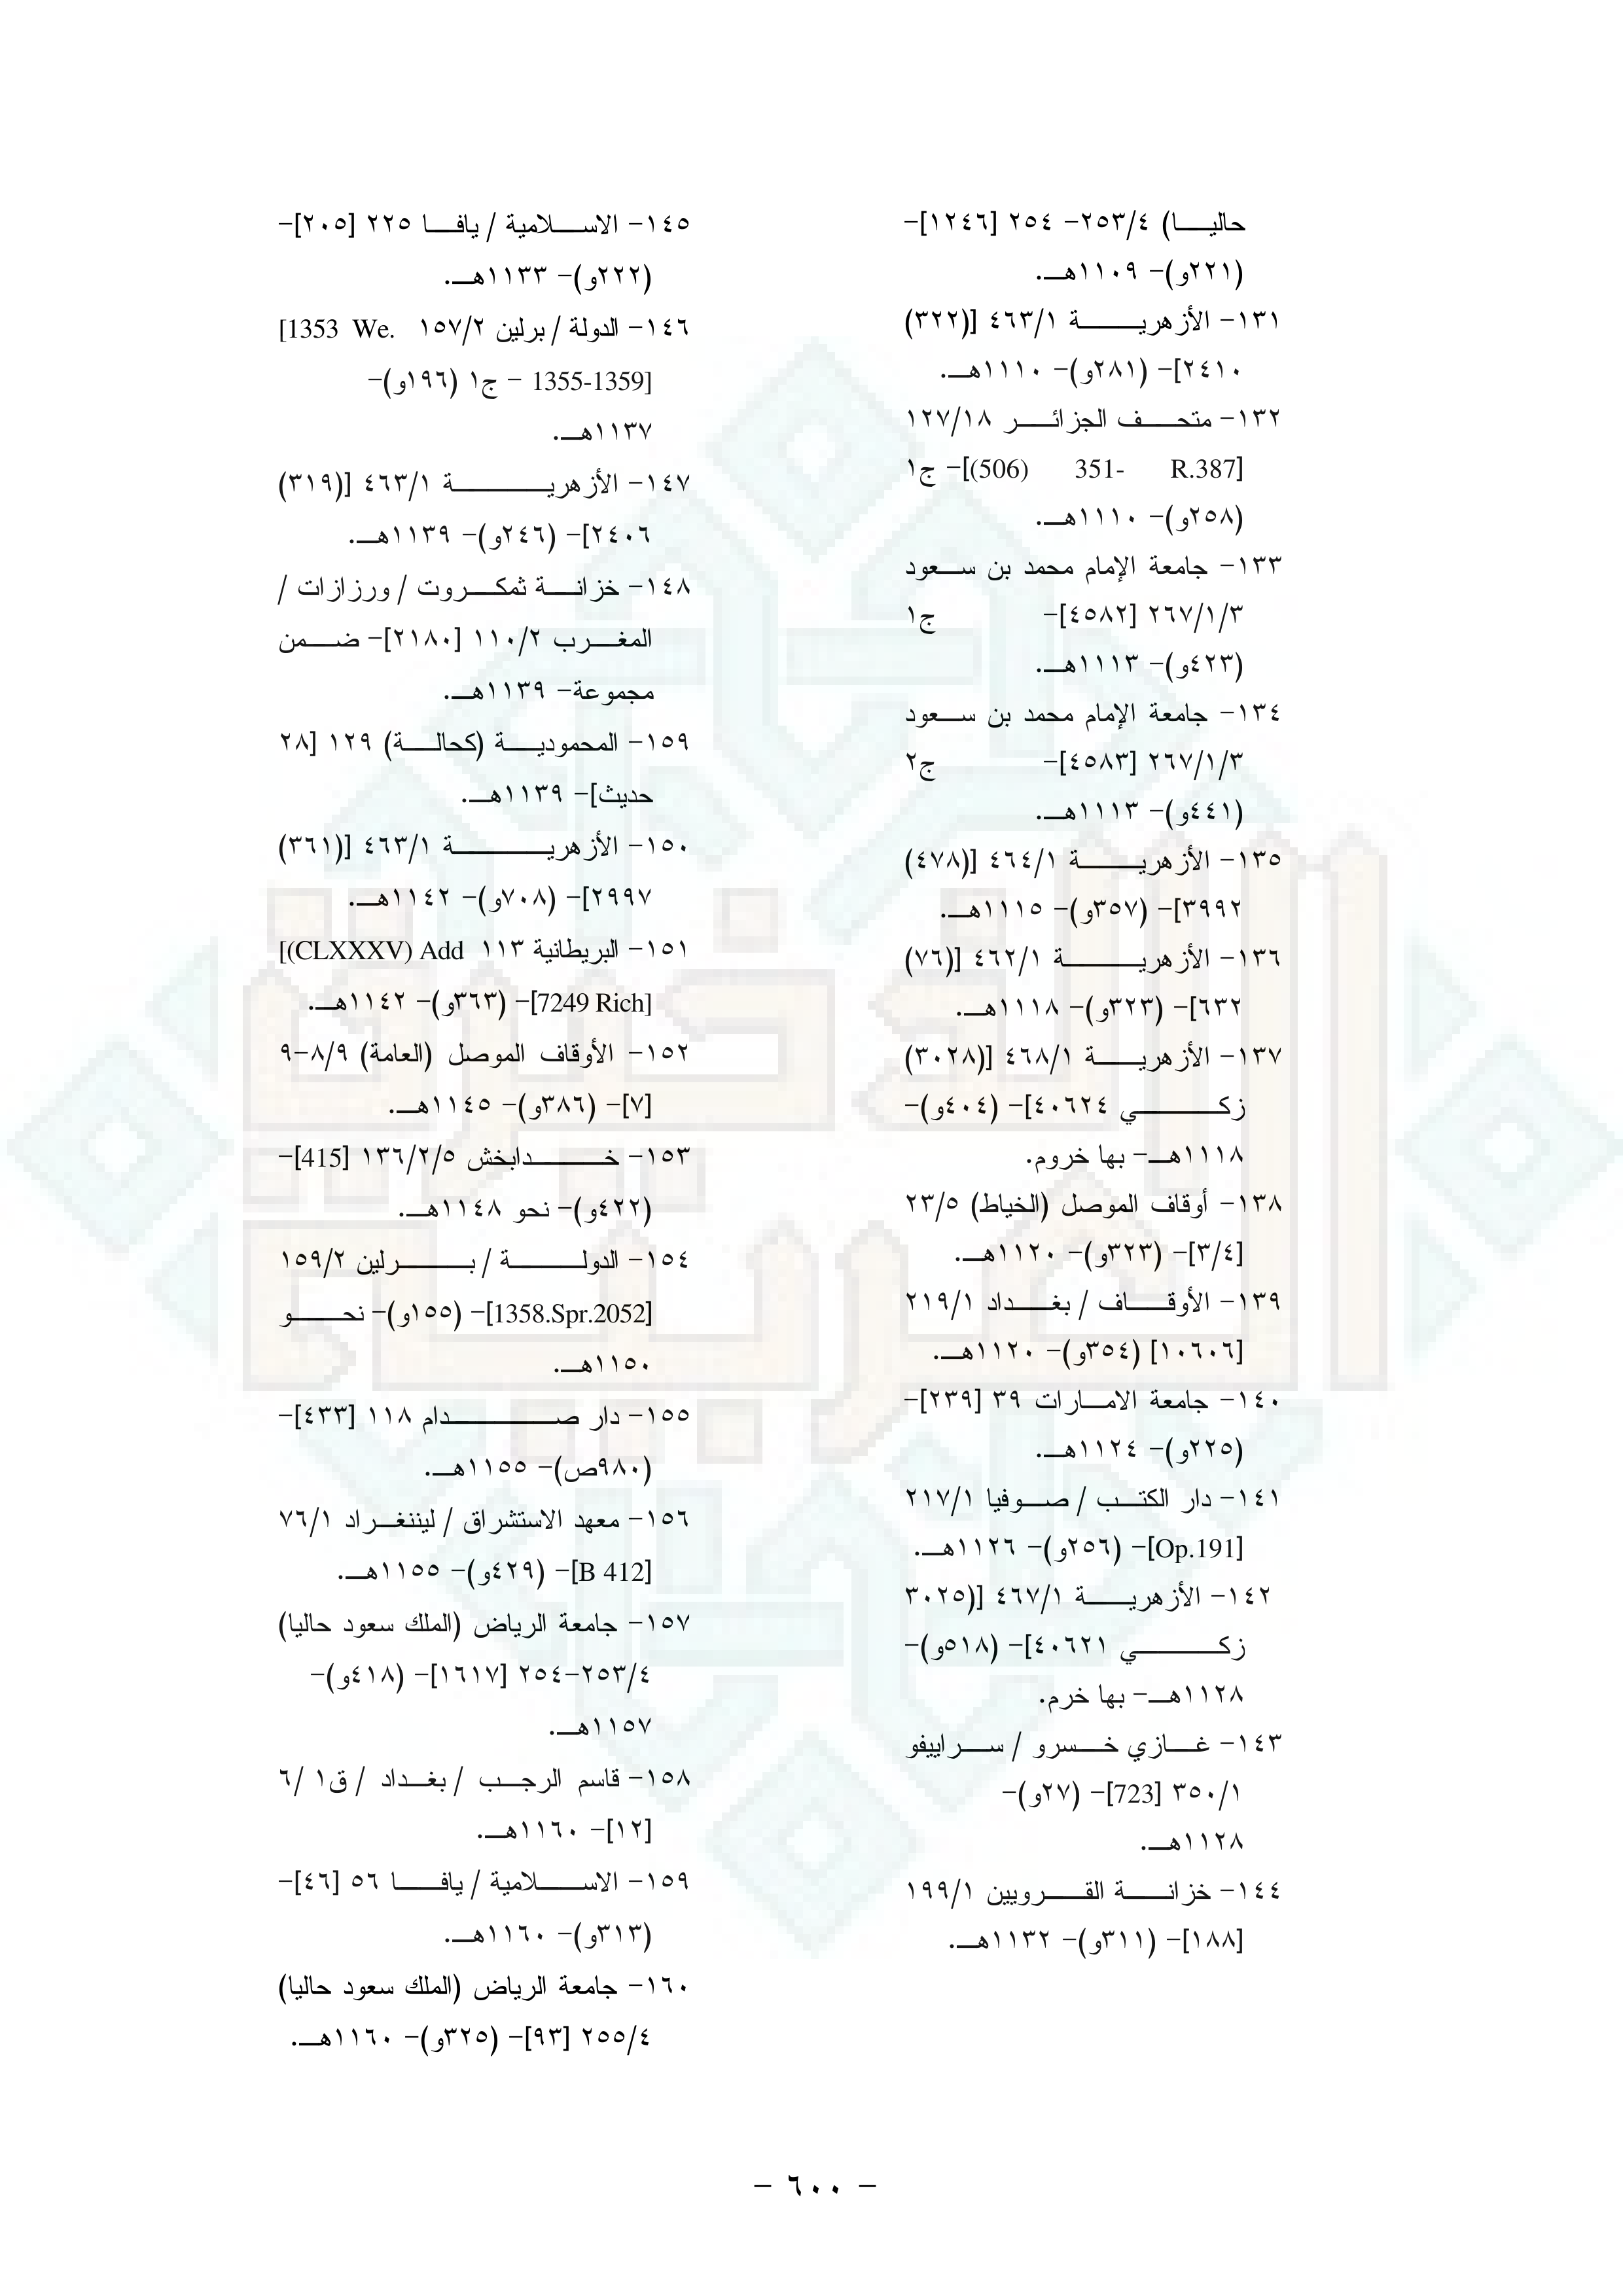 حاليا) ٢٥٣/٤- ٢٥٤ [١٢٤٦]-
(٢٢١و)- ١١٠٩هـ.
١٣١- الأزهرية ٤٦٣/١ [(٣٢٢)
٢٤١٠]- (٢٨١و)- ١١١٠هـ.
١٣٢- متحف الجزائر ١٢٧/١٨
[R.387 351- (506)]- ج١
(٢٥٨و)- ١١١٠هـ.
١٣٣- جامعة الإمام محمد بن سعود
٢٦٧/١/٣ [٤٥٨٢]- ج١
(٤٢٣و)- ١١١٣هـ.
١٣٤- جامعة الإمام محمد بن سعود
٢٦٧/١/٣ [٤٥٨٣]- ج٢
(٤٤١و)- ١١١٣هـ.
١٣٥- الأزهرية ٤٦٤/١ [(٤٧٨)
٣٩٩٢]- (٣٥٧و)- ١١١٥هـ.
١٣٦- الأزهرية ٤٦٢/١ [(٧٦)
٦٣٢]- (٣٢٣و)- ١١١٨هـ.
١٣٧- الأزهرية ٤٦٨/١ [(٣٠٢٨)
زكي ٤٠٦٢٤]- (٤٠٤و)-
١١١٨هـ- بها خروم.
١٣٨- أوقاف الموصل (الخياط) ٢٣/٥
[٣/٤]- (٣٢٣و)- ١١٢٠هـ.
١٣٩- الأوقاف / بغداد ٢١٩/١
[١٠٦٠٦] (٣٥٤و)- ١١٢٠هـ.
١٤٠- جامعة الامارات ٣٩ [٢٣٩]-
(٢٢٥و)- ١١٢٤هـ.
١٤١- دار الكتب / صوفيا ٢١٧/١
[Op.191]- (٢٥٦و)- ١١٢٦هـ.
١٤٢- الأزهرية ٤٦٧/١ [(٣٠٢٥
زكي ٤٠٦٢١]- (٥١٨و)-
١١٢٨هـ- بها خرم.
١٤٣- غازي خسرو / سراييفو
٣٥٠/١ [723]- (٢٧و)-
١١٢٨هـ.
١٤٤- خزانة القرويين ١٩٩/١
[١٨٨]- (٣١١و)- ١١٣٢هـ.
١٤٥- الاسلامية / يافا ٢٢٥ [٢٠٥]-
(٢٢٢و)- ١١٣٣هـ.
١٤٦- الدولة / برلين ١٥٧/٢ [1353 We.
1355-1359] - ج١ (١٩٦و)-
١١٣٧هـ.
١٤٧- الأزهرية ٤٦٣/١ [(٣١٩)
٢٤٠٦]- (٢٤٦و)- ١١٣٩هـ.
١٤٨- خزانة ثمكروت / ورزازات /
المغرب ١١٠/٢ [٢١٨٠]- ضمن
مجموعة- ١١٣٩هـ.
١٥٩- المحمودية (كحالة) ١٢٩ [٢٨
حديث]- ١١٣٩هـ.
١٥٠- الأزهرية ٤٦٣/١ [(٣٦١)
٢٩٩٧]- (٧٠٨و)- ١١٤٢هـ.
١٥١- البريطانية ١١٣ [(CLXXXV) Add
7249 Rich]- (٣٦٣و)- ١١٤٢هـ.
١٥٢- الأوقاف الموصل (العامة) ٨/٩-٩
[٧]- (٣٨٦و)- ١١٤٥هـ.
١٥٣- خدابخش ١٣٦/٢/٥ [415]-
(٤٢٢و)- نحو ١١٤٨هـ.
١٥٤- الدولة / برلين ١٥٩/٢
[1358.Spr.2052]- (١٥٥و)- نحو
١١٥٠هـ.
١٥٥- دار صدام ١١٨ [٤٣٣]-
(٩٨٠ص)- ١١٥٥هـ.
١٥٦- معهد الاستشراق / ليننغراد ٧٦/١
[B 412]- (٤٢٩و)- ١١٥٥هـ.
١٥٧- جامعة الرياض (الملك سعود حاليا)
٢٥٣/٤-٢٥٤ [١٦١٧]- (٤١٨و)-
١١٥٧هـ.
١٥٨- قاسم الرجب / بغداد / ق١ /٦
[١٢]- ١١٦٠هـ.
١٥٩- الاسلامية / يافا ٥٦ [٤٦]-
(٣١٣و)- ١١٦٠هـ.
١٦٠- جامعة الرياض (الملك سعود حاليا)
٢٥٥/٤ [٩٣]- (٣٢٥و)- ١١٦٠هـ.
- ٦٠٠ -